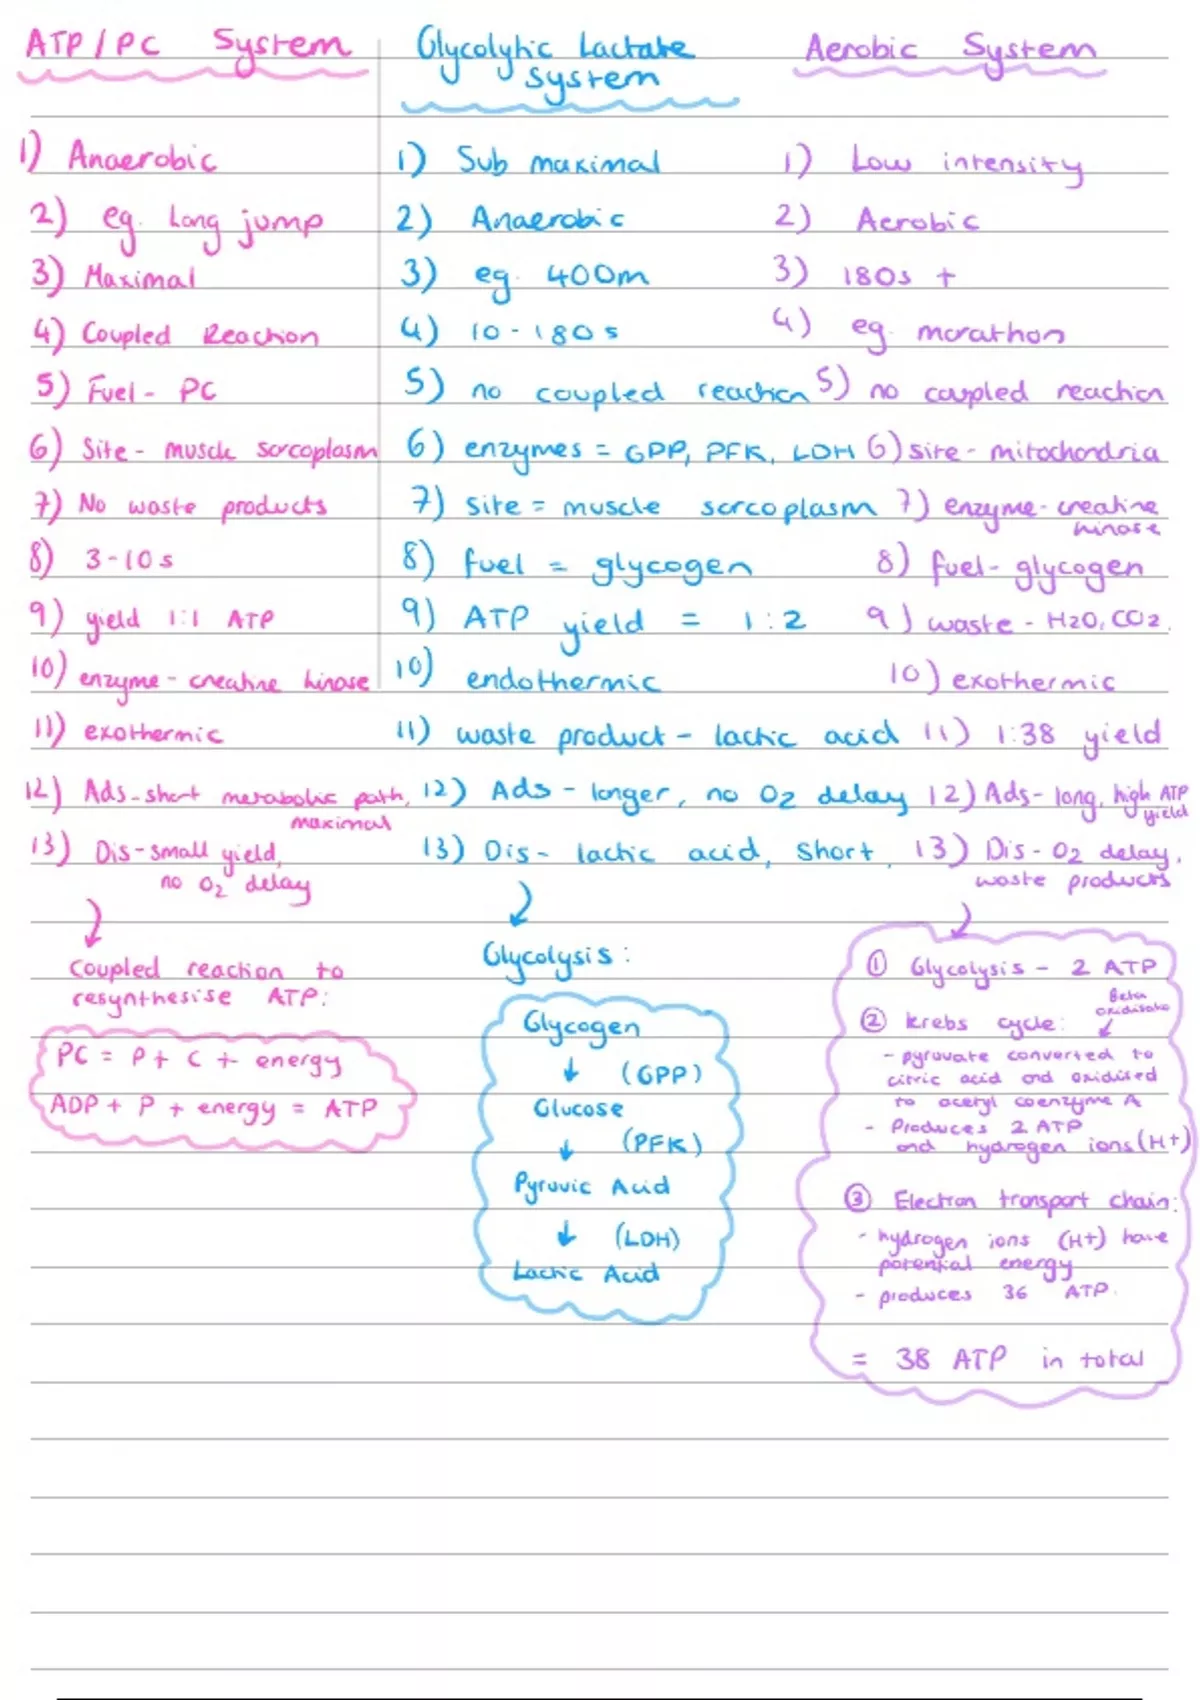 ATP/PC System
1) Anaerobic
2) eg. Long jump
3) Maximal
4) Coupled Reaction
5) Fuel - PC
6) Site - muscle sarcoplasm
7) No waste products
8) 3-10s
9) yield 1:1 ATP
10) enzyme - creatine kinase
11) exothermic
12) Ads - short metabolic path,
maximal
13) Dis - small yield,
no O2 delay
Coupled reaction to
resynthesise ATP:
PC = P + C + energy
ADP + P + energy = ATP
Glycolytic Lactate
System
1) Sub maximal
2) Anaerobic
3) eg. 400m
4) 10-180s
5) no coupled reaction
6) enzymes = GPP, PFK, LDH
7) Site = muscle sarcoplasm
8) fuel = glycogen
9) ATP yield = 1:2
10) endothermic
11) waste product - lactic acid
12) Ads - longer, no O2 delay
13) Dis - lactic acid, short
Glycolysis:
Glycogen
↓ (GPP)
Glucose
↓ (PFK)
Pyruvic Acid
↓ (LDH)
Lactic Acid
Aerobic System
1) Low intensity
2) Aerobic
3) 180s +
4) eg. marathon
5) no coupled reaction
6) site - mitochondria
7) enzyme - creatine
kinase
8) fuel - glycogen
9) waste - H2O, CO2.
10) exothermic
11) 1:38 yield
12) Ads - long, high ATP
yield
13) Dis - O2 delay,
waste products
① Glycolysis - 2 ATP
Beta
② Krebs cycle:
- pyruvate converted to
citric acid and oxidised
to acetyl coenzyme A
- Produces 2 ATP
and hydrogen ions (H+)
③ Electron transport chain:
- hydrogen ions (H+) have
potential energy
- produces 36 ATP.
= 38 ATP in total